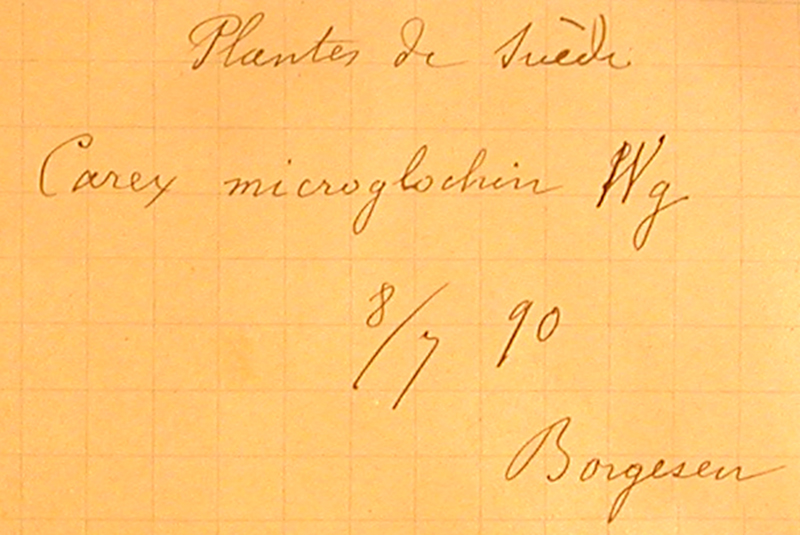 Plantes de Suède
Carex microglochin Wg
8/7 90
Borgesen